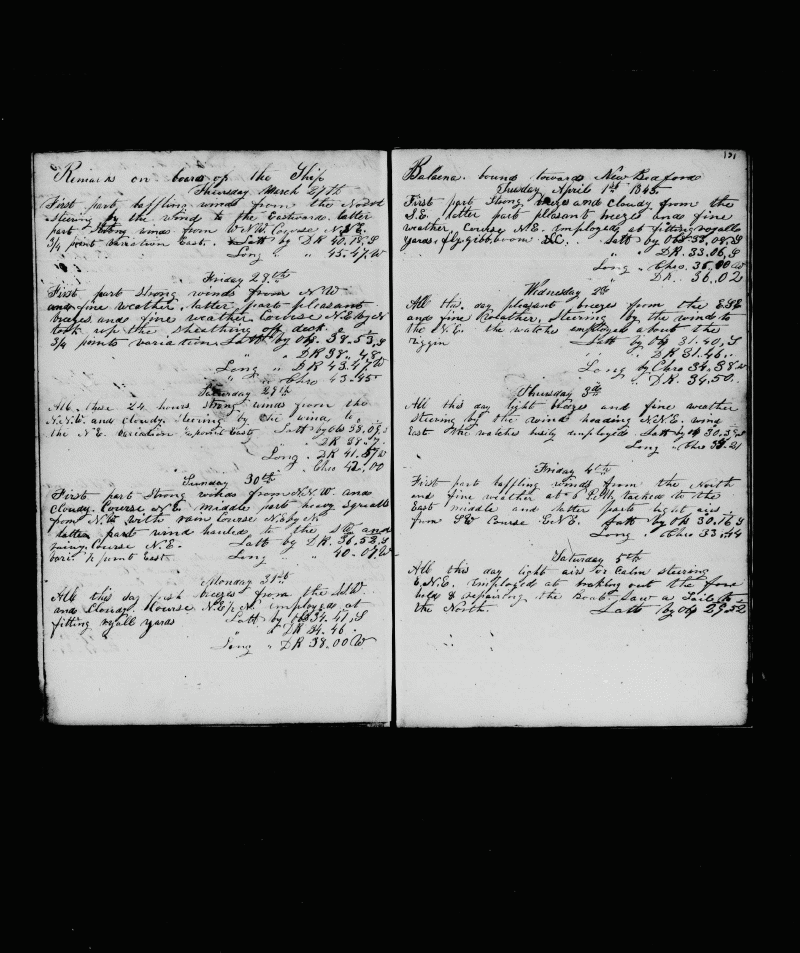 Remarks on board of the Ship
Thursday March 27th
First part baffling winds from the
steering by the wind to the Eastward. latter
part strong winds from WNW Course N.E.
3/4 point variation East. Latt by DR 40.18,S
Long " " 45.47,W
Friday 28th
First part strong winds from N.W
and fine weather, latter part pleasant
breezes and fine weather Course N.E by N
took up the sheathing of deck
3/4 points variation. Latt by Ob. 38.53,S
" " DR 38.48,
Long " DR 43.47W
" " Chro 43.45
Saturday 29th
All these 24 hours strong winds from the
N.N.E. and cloudy. Steering by the wind to
the N.E. variation East Latt by Ob 38.09,S
" " DR 38.
Long " DR 41.
" Chro 42.00
Sunday 30th
First part strong winds from N.N.W. and
cloudy. Course N.E. middle part heavy squalls
from N.W with rain Course N.E by N.
latter part wind hauled to the and
rainy, Course N.E. Latt by DR. 36.52,S
vari. 1/2 point East. Long " " 40.07W
Monday 31st
All this day fresh breezes from the
and Cloudy. Course N.E by N. employed at
fitting royall yards Latt by Ob 34.41,S
" " DR 34.46
Long " DR 38.00W
131
Balaena. bound towards New Bedford
Tuesday April 1st 1845.
First part strong breezes and cloudy from the
S.E. latter part pleasant breezes and fine
weather, Course N.E. employed at fitting royalls
yards, flying jibboom &C. Latt by Ob 33.08,S
" " DR. 33.06,S
Long " Chro. 36.00W
" " DR. 36.02
Wednesday 2d
All this day pleasant breezes from the ESE
and fine weather, steering by the wind to
the N.E. the watches employed about the
riggin Latt by Ob 31.40,S
" " DR 31.46"
Long by Chro 34.38W
" " DR. 34.50.
Thursday 3d
All this day light breezes and fine weather
steering by the wind heading N.N.E. wind
East the watches busily employed Latt by Ob 30.
Long " Chro 21
Friday 4th
First part baffling winds from the North
and fine weather at 8 P.M. tacked to the
East middle and latter parts light airs
from SE Course E.N.E. Latt by Ob 30.16,S
Long " Chro 33.44
Saturday 5th
All this day light airs or Calm steering
E.N.E. employed at breaking out the fore
hold & repairing the Boat. Saw a Sail to
the North. Latt by Ob 29.52